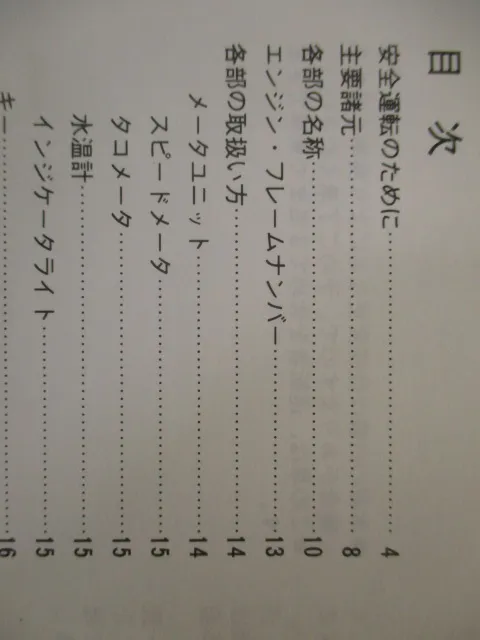 目次
安全運転のために 4
主要諸元 8
各部の名称 10
エンジン・フレームナンバー 13
各部の取扱い方 14
メータユニット 14
スピードメータ 15
タコメータ 15
水温計 15
インジケータライト 15
キー 16